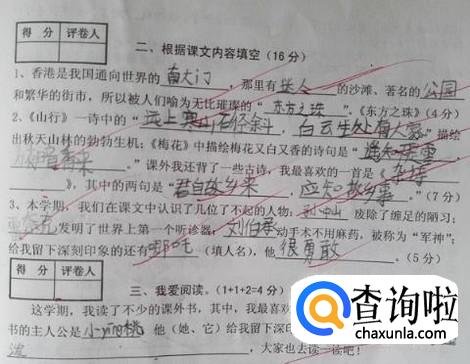 得 分 评卷人
二、根据课文内容填空(16分)
1、香港是我国通向世界的 南大门 ,那里有 迷人 的沙滩、著名的 公园
和繁华的街市,所以被人们喻为无比璀璨的“ 东方之珠 ”。《东方之珠》(4分)
2、《山行》一诗中的“ 远上寒山石径斜 , 白云生处有人家 ”描绘
出秋天山林的勃勃生机;《梅花》中描绘梅花又白又香的诗句是“ 遥知不是雪
”。课外我还背了一些古诗,我最喜欢的一首是《 杂诗
》,其中的两句是“ 君自故乡来 , 应知故乡事 。”(7分)
3、本学期,我们在课文中认识了几位了不起的人物: 孙中山 废除了缠足的陋习;
发明了世界上第一个听诊器; 刘伯承 动手术不用麻药,被称为“军神”;
给我留下深刻印象的还有 哪吒 (填人名),他 很勇敢 。(5分)
得 分 评卷人
三、我爱阅读。(1+1+2=4分)
这学期,我读了不少的课外书,其中,我最喜欢
书的主人公是 他(她、它)给我留下深
,大家也去读一读吧!
查询啦
chaxunla.com